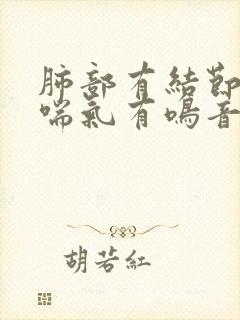 肺部有結節
喘氣有鳴音
胡若紅